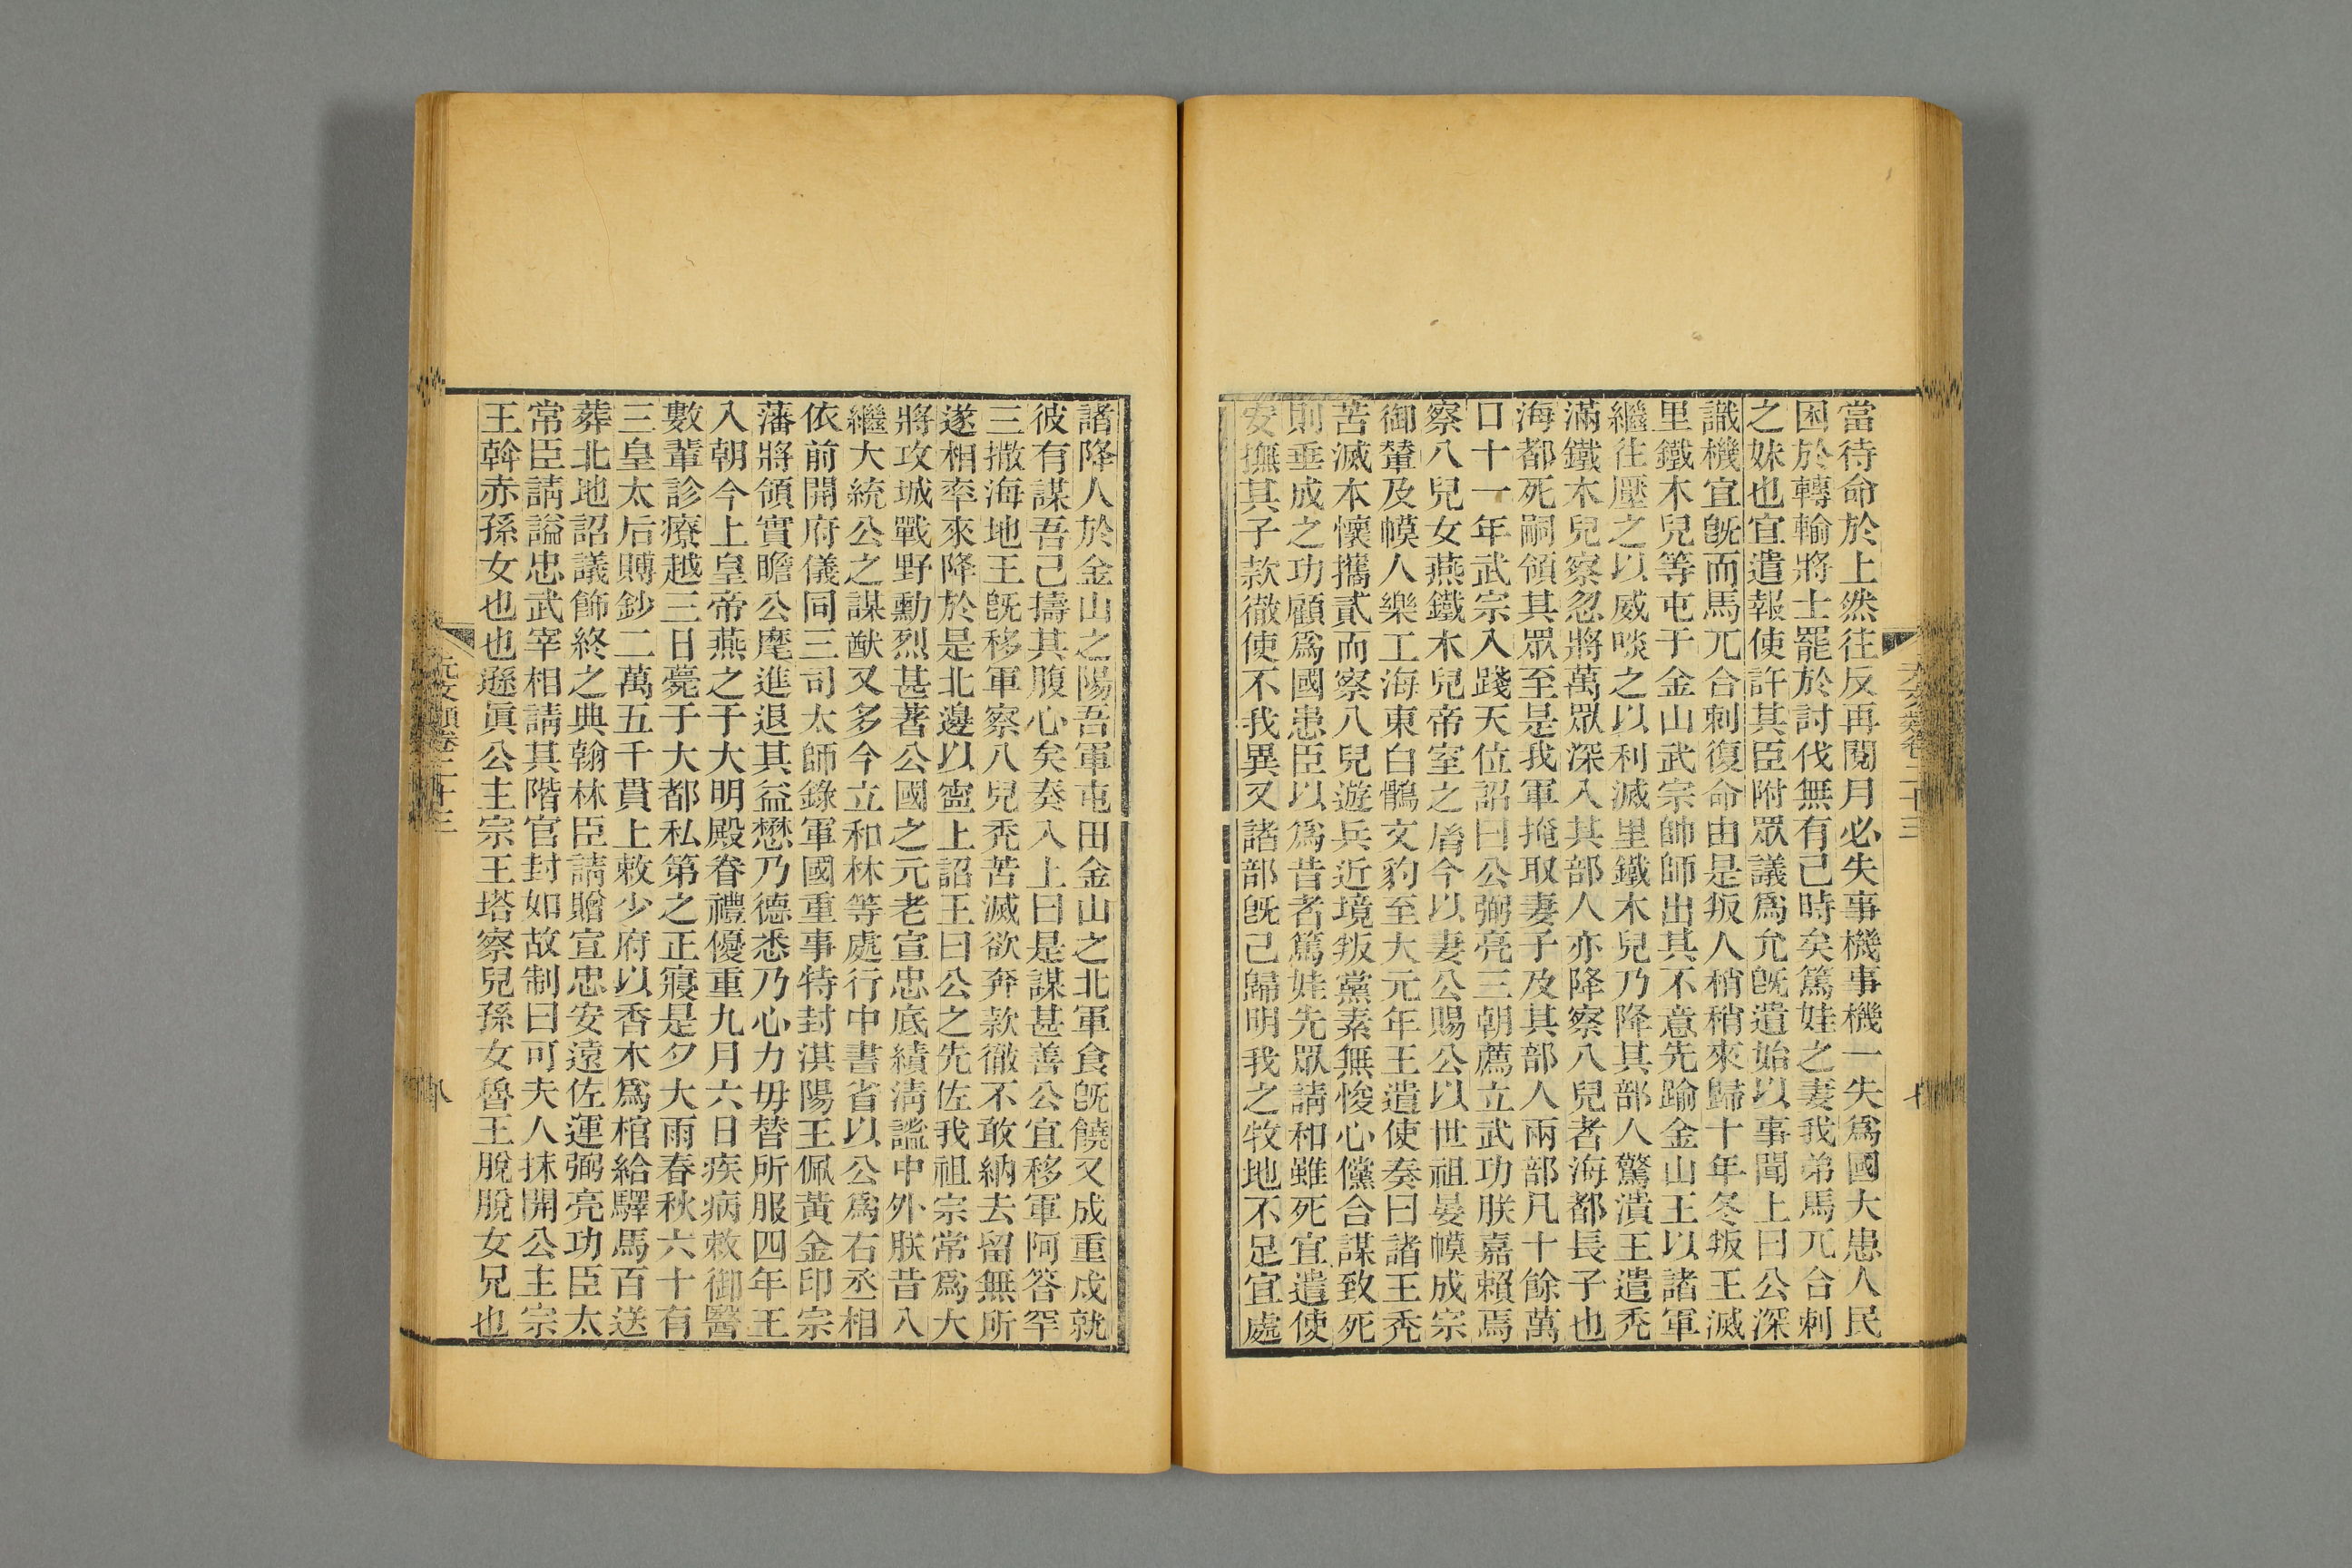 當待命於上然往反再閱月必失事機事機一失爲國大患人民
困於轉輸將士罷於討伐無有已時矣篤娃之妻我弟馬兀合剌
之妹也宜遣報使許其臣附眾議爲允既遣始以事聞上曰公深
識機宜既而馬兀合剌復命由是叛人稍稍來歸十年冬叛王滅
里鐵木兒等屯于金山武宗帥師出其不意先踰金山王以諸軍
繼往壓之以威啖之以利滅里鐵木兒乃降其部人驚潰王遣禿
滿鐵木兒察忽將萬眾深入其部人亦降察八兒者海都長子也
海都死嗣領其眾至是我軍掩取妻子及其部人兩部凡十餘萬
口十一年武宗入踐天位詔曰公弼亮三朝薦立武功朕嘉賴焉
察八兒女燕鐵木兒帝室之㞕今以妻公賜公以世祖晏幙成宗
御輦及幙人樂工海東白鶻文豹至大元年王遣使奏曰諸王禿
苦滅本懷攜貳而察八兒遊兵近境叛黨素無悛心儻合謀致死
則垂成之功顧爲國患臣以爲昔者篤娃先眾請和雖死宜遣使
安撫其子款徹使不我異又諸部既已歸明我之牧地不足宜處
元文類卷二十三
七
諸降人於金山之陽吾軍屯田金山之北軍食既饒又成重戍就
彼有謀吾已擣其腹心矣奏入上曰是謀甚善公宜移軍阿答罕
三撒海地王既移軍察八兒禿苦滅欲奔款徹不敢納去留無所
遂相率來降於是北邊以寧上詔王曰公之先佐我祖宗常爲大
將攻城戰野勳烈甚著公國之元老宣忠底績淸謐中外朕昔入
繼大統公之謀猷又多今立和林等處行中書省以公爲右丞相
依前開府儀同三司太師錄軍國重事特封淇陽王佩黃金印宗
藩將領實瞻公麾進退其益懋乃德悉乃心力毋替所服四年王
入朝今上皇帝燕之于大明殿眷禮優重九月六日疾病敕御醫
數輩診療越三日薨于大都私第之正寢是夕大雨春秋六十有
三皇太后賻鈔二萬五千貫上敕少府以香木爲棺給驛馬百送
葬北地詔議飾終之典翰林臣請贈宣忠安遠佐運弼亮功臣太
常臣請謚忠武宰相請其階官封如故制曰可夫人抹開公主宗
王斡赤孫女也也遜眞公主宗王塔察兒孫女魯王脫脫女兄也
元文類卷二十三
八